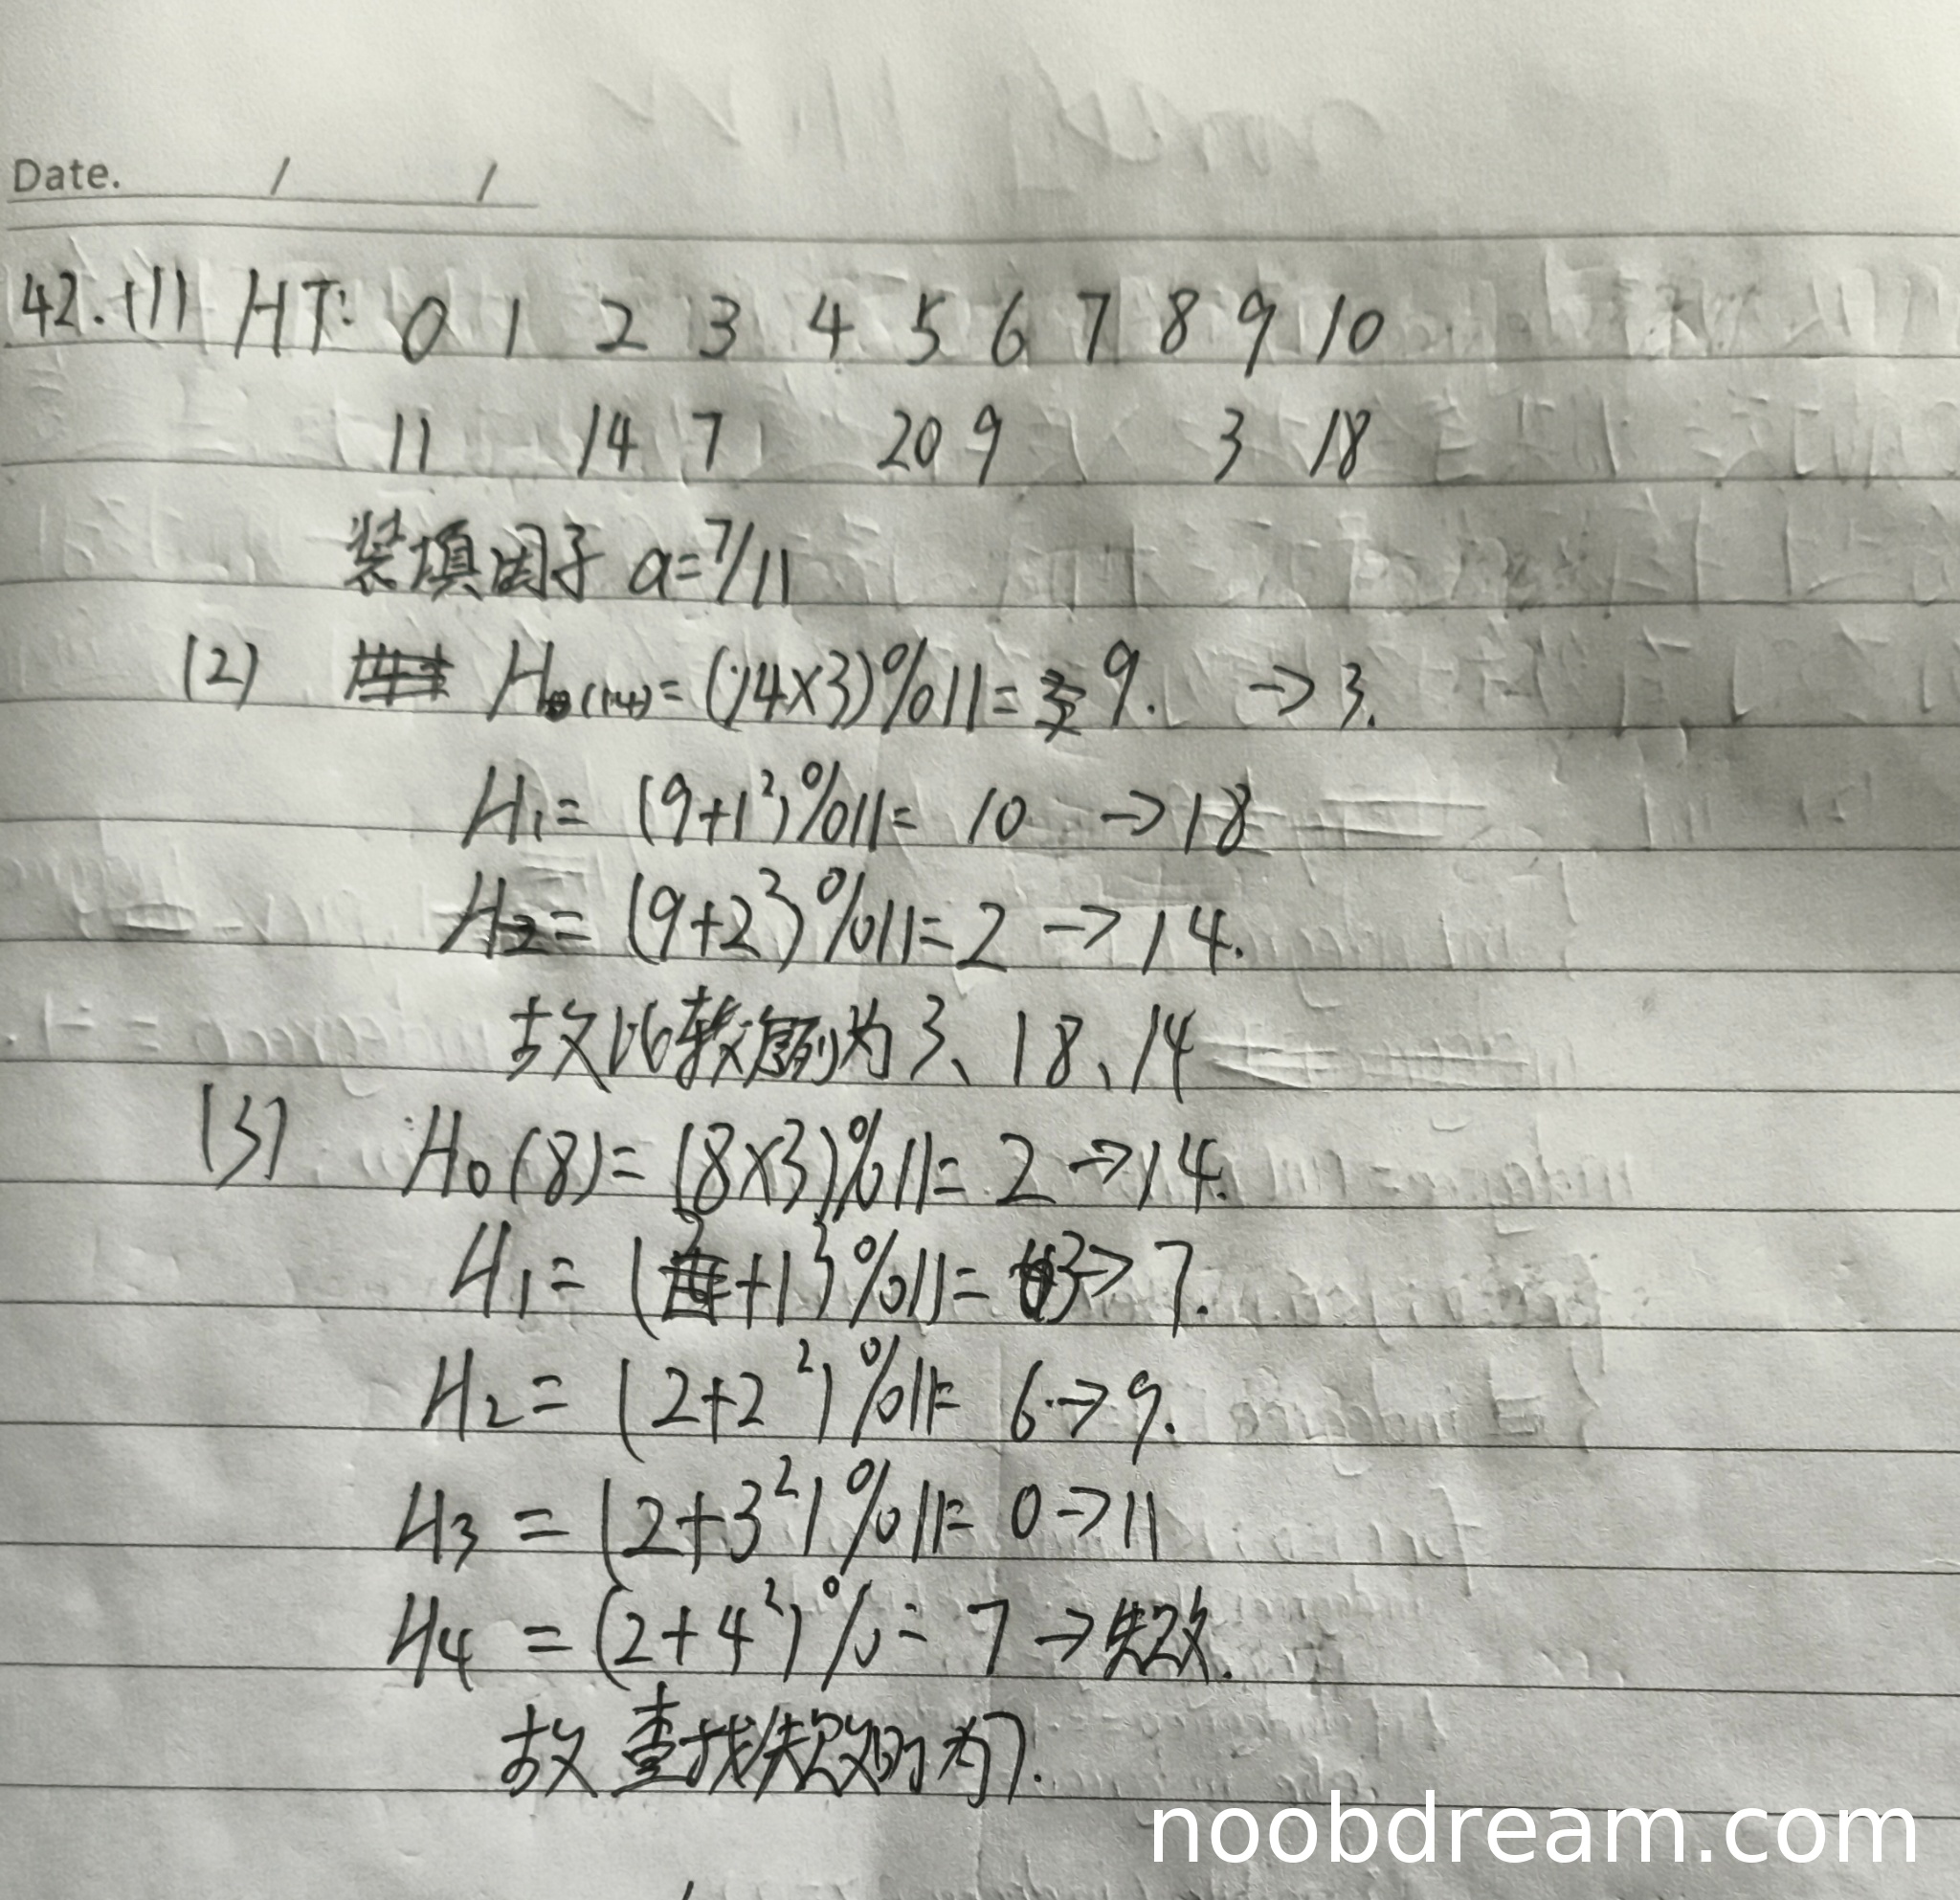 Date. / /
42.(1) HT: 0 1 2 3 4 5 6 7 8 9 10
11 14 7 20 9 3 18
装填因子 a=7/11
(2) H₀(14)=(14×3)%11= 9. → 3.
H₁= (9+1²)%11= 10 → 18
H₂= (9+2²)%11= 2 → 14.
故比较序列为 3、18、14
(3) H₀(8)= (8×3)%11= 2 → 14.
H₁= (2+1²)%11= 3 → 7.
H₂= (2+2²)%11= 6 → 9.
H₃ = (2+3²)%11= 0 → 11
H₄ = (2+4²)%= 7 → 失败.
故 查找失败时为7.
noobdream.com